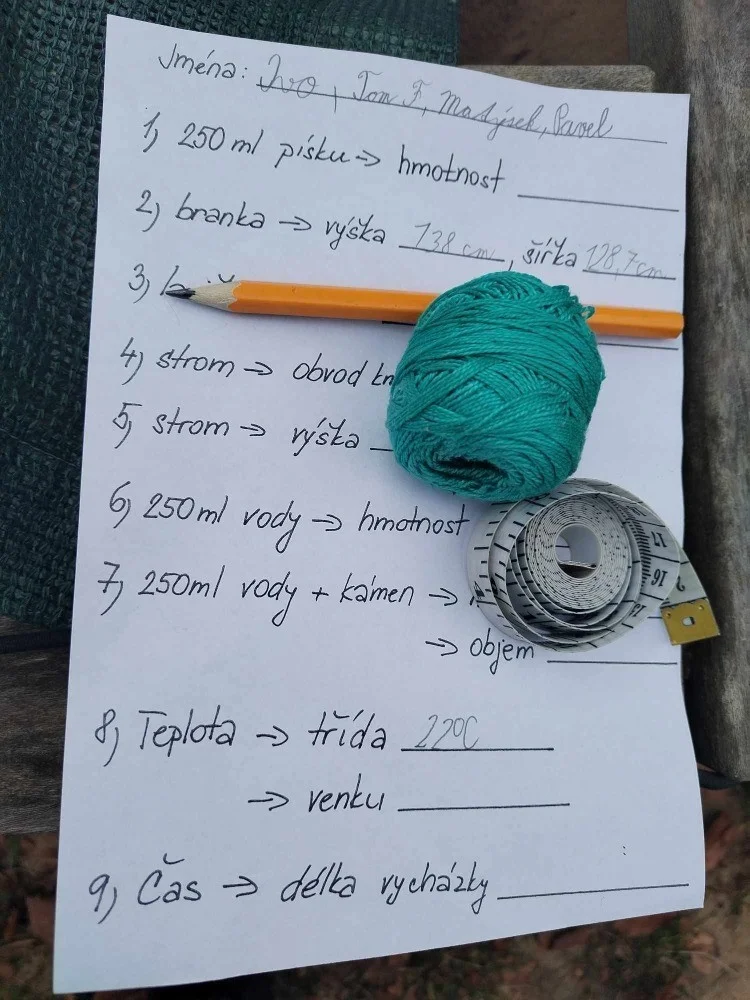 Jména: Ivo, Tom F, Matýsek, Pavel
1) 250 ml písku → hmotnost
2) branka → výška 138 cm, šířka 128,7 cm
3)
4) strom → obvod
5) strom → výška
6) 250 ml vody → hmotnost
7) 250ml vody + kámen →
→ objem
8) Teplota → třída 22°C
→ venku
9) Čas → délka vycházky
17
16